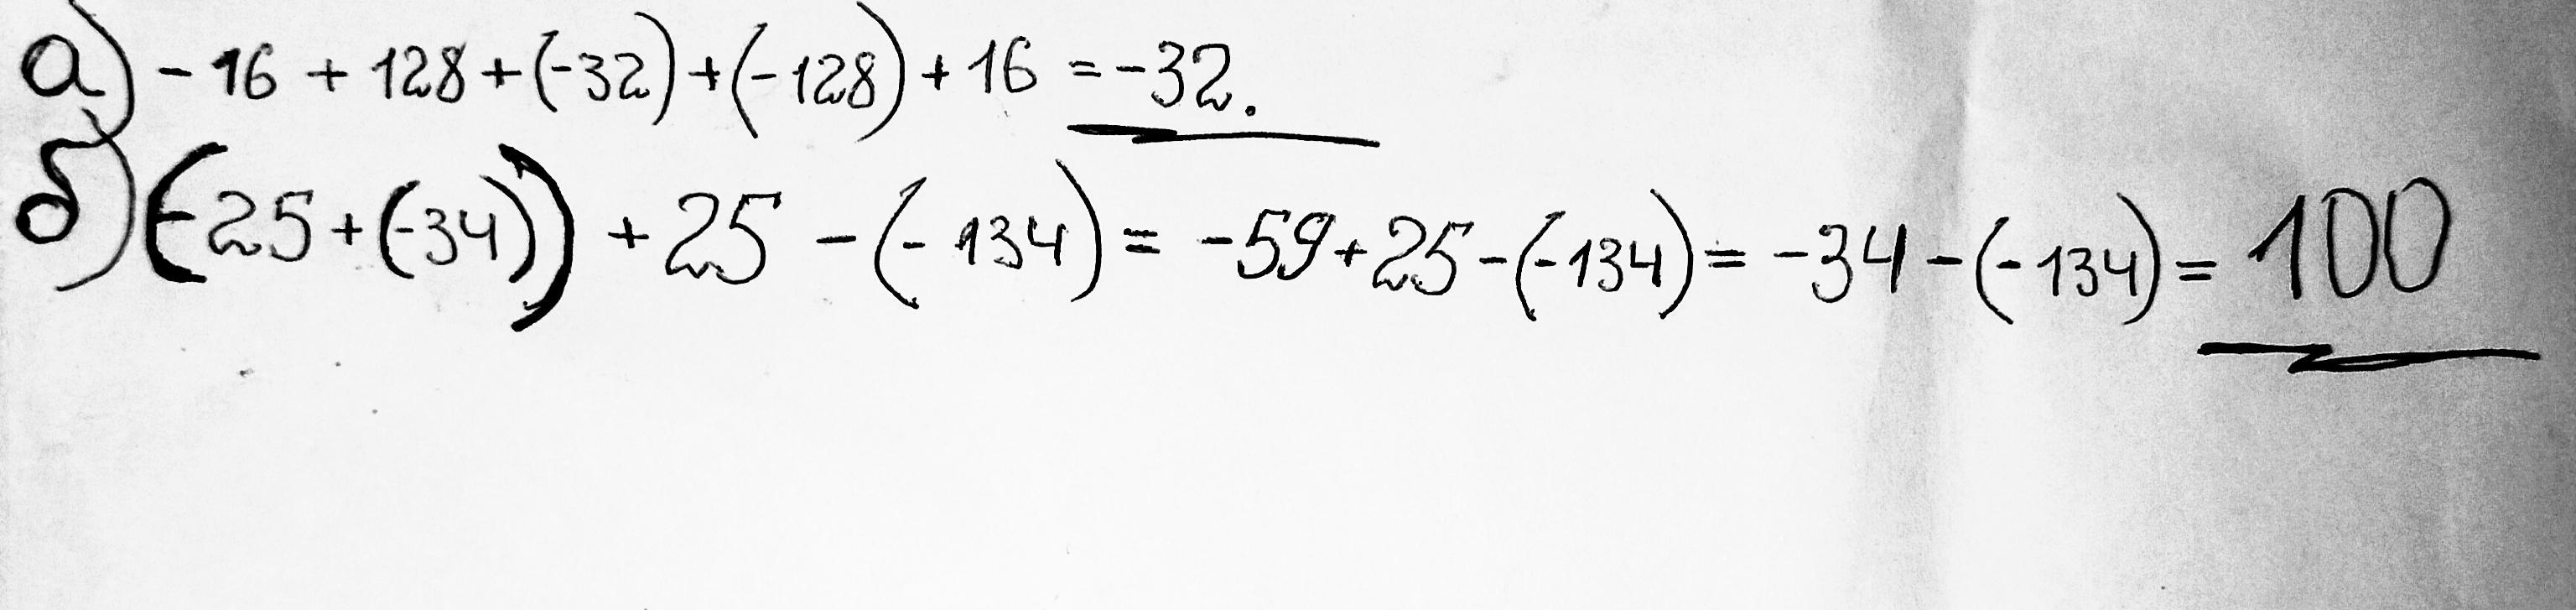 а) - 16 + 128 + (-32) + (-128) + 16 = -32.
б) (-25 + (-34)) + 25 - (- 134) = -59 + 25 - (-134) = -34 - (-134) = 100